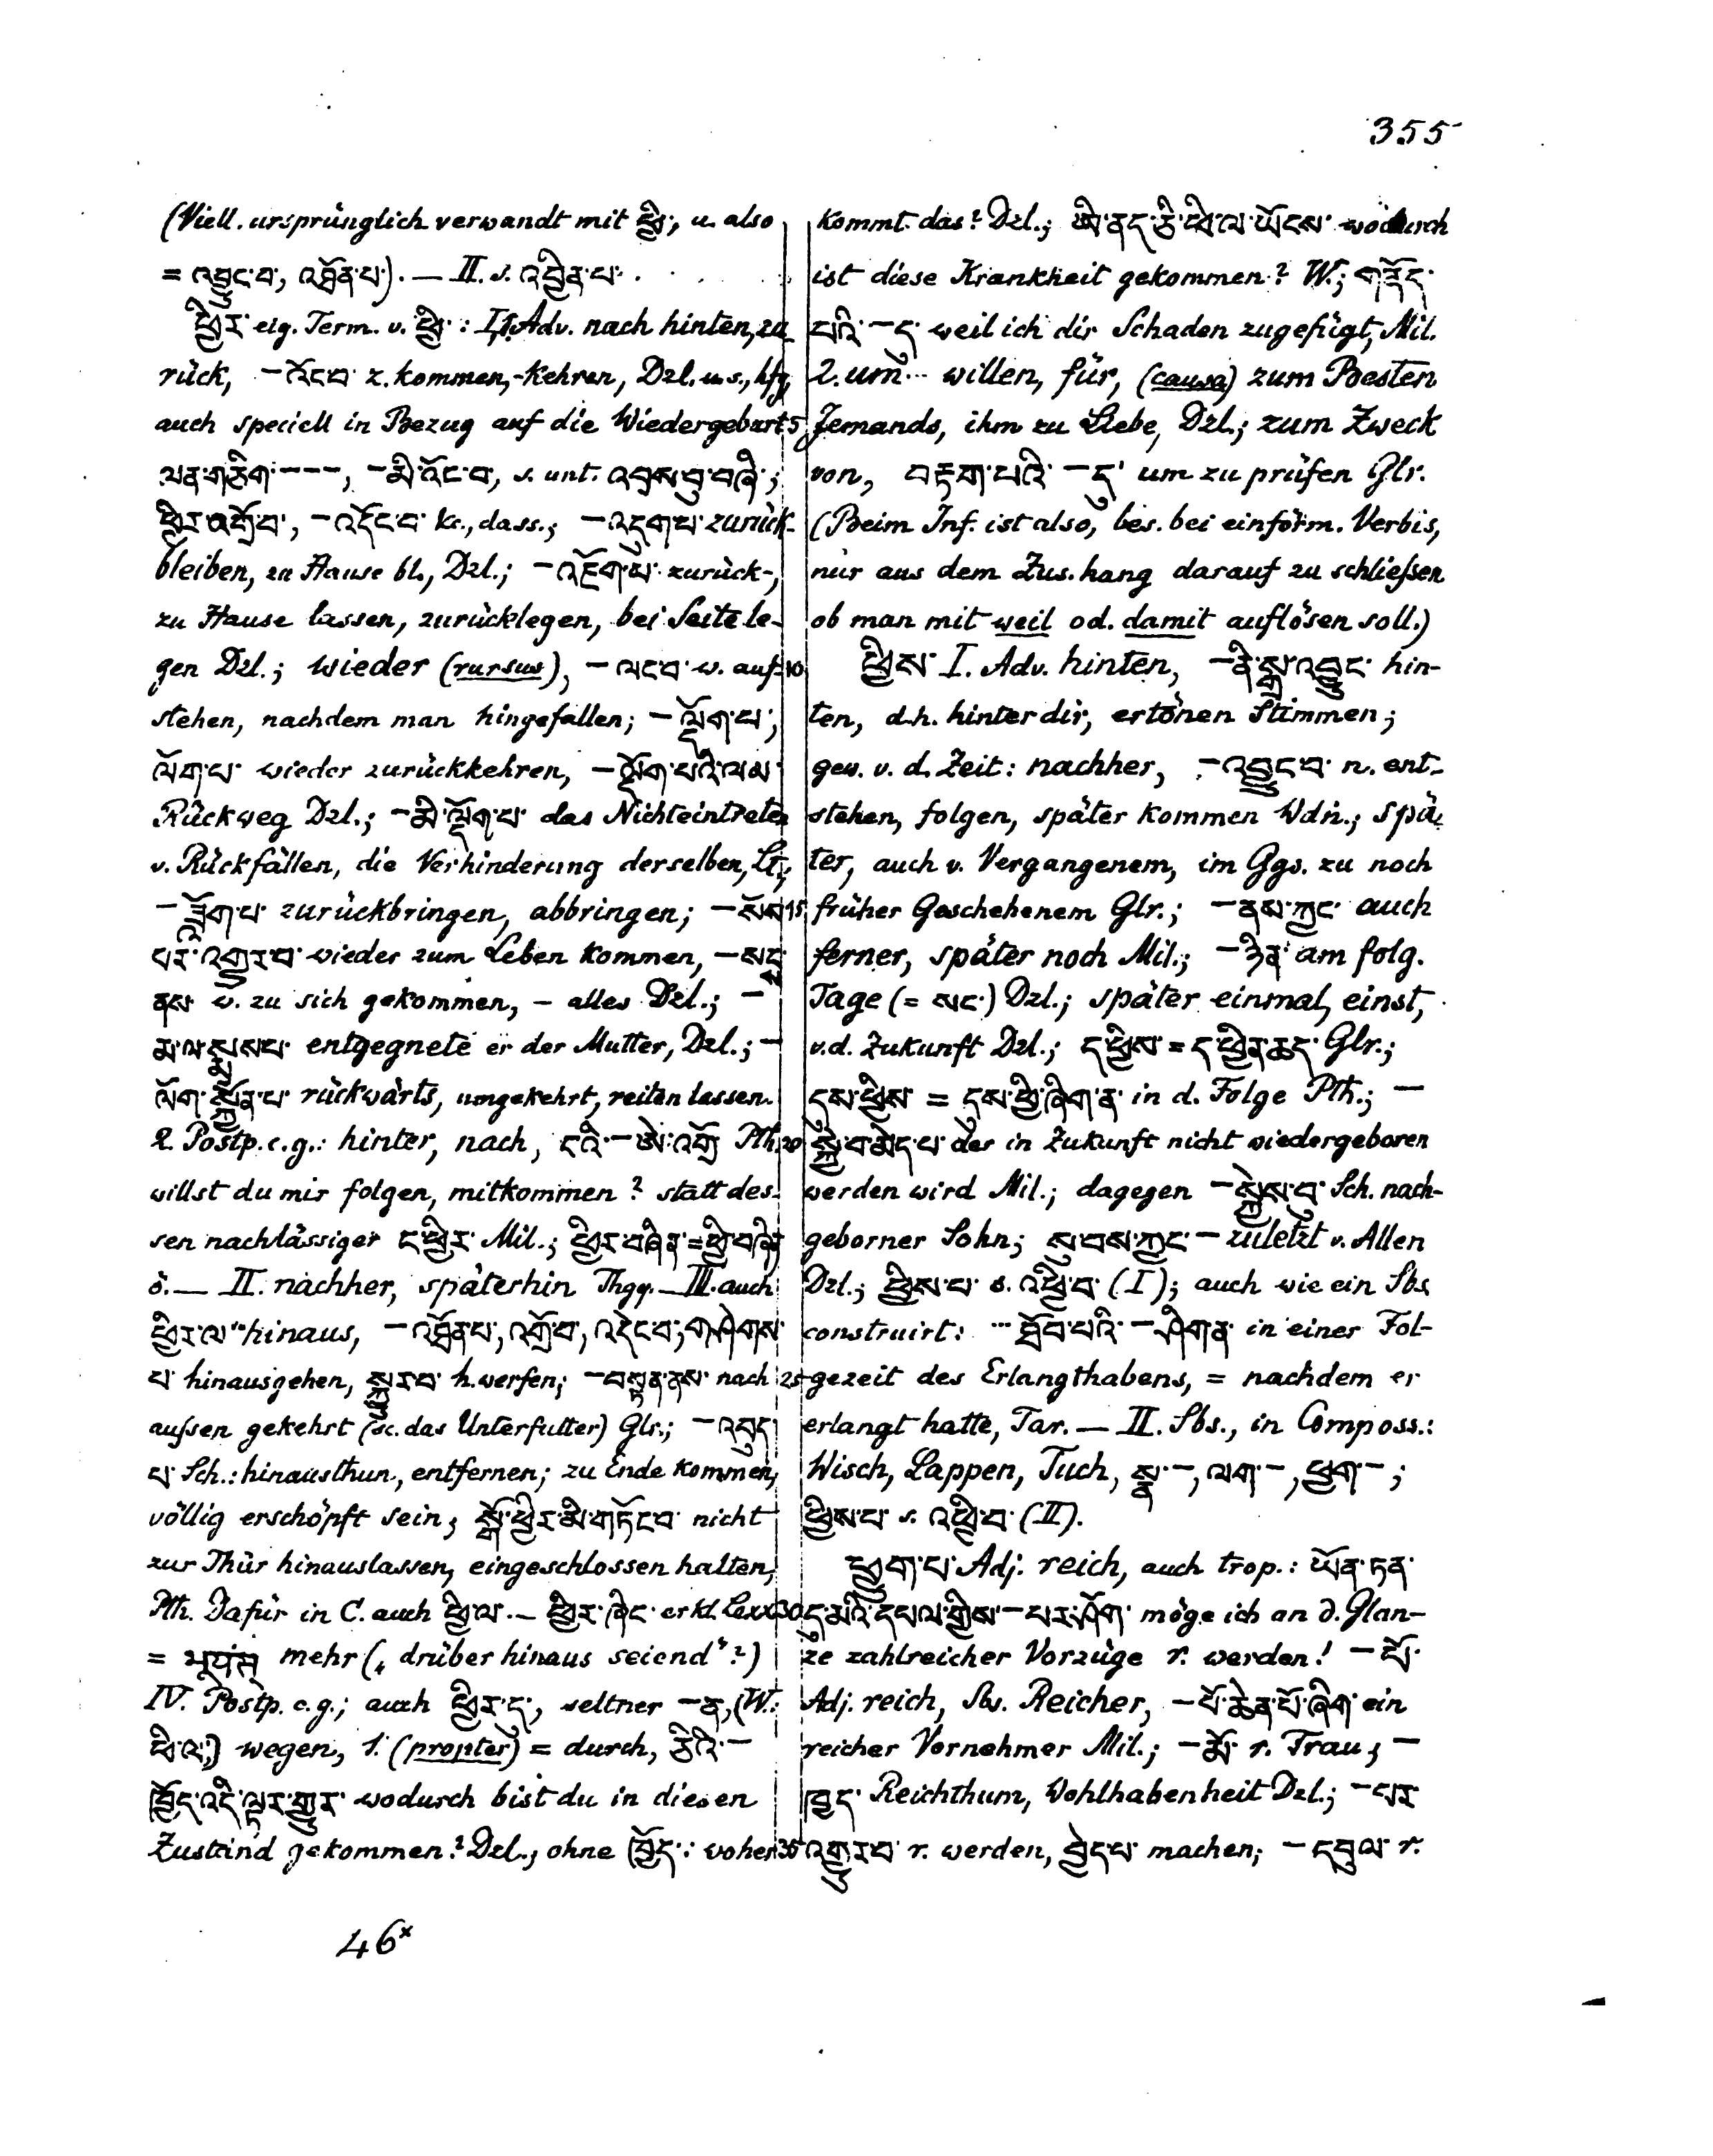 355
(Viell. ursprünglich verwandt mit ཕྱི་, u. also
= འབྱུང་བ, འཐོན་པ་). — II. s. འབྱིན་པ་
ཕྱིར་ eig. Term. v. ཕྱི་: I, 1. Adv. nach hinten, zu-
rück, —འོང་བ་ z. kommen, -kehren, Dzl. u. s., hfg.
auch speciell in Bezug auf die Wiedergeburt
ལན་གཅིག་ ---, —མི་འོང་བ, s. unt. འབྲས་བུ་བཞི་;
ཕྱིར་འགྲོ་བ་, —འདོང་བ་ &c., dass.; —འདུག་པ་ zurück-
bleiben, zu Hause bl., Dzl.; —འཇོག་པ་ zurück-,
zu Hause lassen, zurücklegen, bei Seite le-
gen Dzl.; wieder (rursus), —ལང་བ་ w. auf-
stehen, nachdem man hingefallen; —ལྡོག་པ་,
ལོག་པ་ wieder zurückkehren, —ལྡོག་པའི་ལམ་
Rückweg Dzl.; —མི་ལྡོག་པ་ das Nichteintreten
v. Rückfällen, die Verhinderung derselben, Lt.;
—ཟློག་པ་ zurückbringen, abbringen; —སོས་
པར་འགྱུར་བ་ wieder zum Leben kommen, —སད་
ནས་ w. zu sich gekommen, — alles Dzl.; —
མ་ལ་སྨྲས་པ་ entgegnete er der Mutter, Dzl.; —
ལོག་སྐྱོན་པ་ rückwärts, umgekehrt, reiten lassen.
2. Postp. c. g.: hinter, nach, ངའི་—ཨེ་འགྲོ Pth.
willst du mir folgen, mitkommen? statt des-
sen nachlässiger ང་ཕྱིར་ Mil.; ཕྱིར་བཞིན་=ཕྱི་བཞིན
ö. — II. nachher, späterhin Thgy. — III. auch
ཕྱིར་ལ་ hinaus, —འཐོན་པ་, འགྲོ་བ་, འདེང་བ་, གཤེགས་
པ་ hinausgehen, སྐྱུར་བ་ h. werfen; —བསྟན་ནས་ nach
aufsen gekehrt (sc. das Unterfutter) Glr.; —འབུད་
པ་ Sch.: hinausthun, entfernen; zu Ende kommen,
völlig erschöpft sein; སྒོ་ཕྱིར་མི་གཏོང་བ་ nicht
zur Thür hinauslassen, eingeschlossen halten,
Pth. Dafür in C. auch ཕྱི་ལ་. — ཕྱིར་ཞིང་ erkl. Lexx.
= भूयंस् mehr („drüber hinaus seiend"?)
IV. Postp. c. g.; auch ཕྱིར་དུ་, seltner —ན, (W.:
ཕྱི་ལ་) wegen, 1. (propter) = durch, ཅིའི་—
ཁྱོད་འདི་ལྟར་གྱུར་ wodurch bist du in diesen
Zustand gekommen? Dzl.; ohne ཁྱོད་: woher
kommt das? Dzl.; ཨི་ནད་ཅི་ཕྱི་ལ་ཡོངས་ wodurch
ist diese Krankheit gekommen? W.; གནོད་
པའི་—དུ་ weil ich dir Schaden zugefügt, Mil.
2. um... willen, für, (causa) zum Besten
Jemands, ihm zu Liebe, Dzl.; zum Zweck
von, བརྟག་པའི་—དུ་ um zu prüfen Glr.
(Beim Inf. ist also, bes. bei einförm. Verbis,
nur aus dem Zus.hang darauf zu schliefsen
ob man mit weil od. damit auflösen soll.)
ཕྱིས་ I. Adv. hinten, —ནི་སྒྲ་འབྱུང་ hin-
ten, d. h. hinter dir, ertönen Stimmen;
gew. v. d. Zeit: nachher, —འབྱུང་བ་ n. ent-
stehen, folgen, später kommen Wdn.; spä-
ter, auch v. Vergangenem, im Ggs. zu noch
früher Geschehenem Glr.; —ནས་ཀྱང་ auch
ferner, später noch Mil.; —ཉིན་ am folg.
Tage (= སང་) Dzl.; später einmal, einst,
v. d. Zukunft Dzl.; ད་ཕྱིས་ = ད་ཕྱིན་ཆད་ Glr.;
དུས་ཕྱིས་ = དུས་ཕྱི་ཞིག་ན་ in d. Folge Pth.; —
སྐྱེ་བ་མེད་པ་ der in Zukunft nicht wiedergeboren
werden wird Mil.; dagegen —སྐྱེས་བུ་ Sch. nach-
geborner Sohn; སུ་བས་ཀྱང་— zuletzt v. Allen
Dzl.; ཕྱིས་པ་ s. འཕྱི་བ་ (I); auch wie ein Sbs
construirt: ... ཐོབ་པའི་—ཤིག་ན་ in einer Fol-
gezeit des Erlangthabens, = nachdem er
erlangt hatte, Tar. — II. Sbs., in Composs.:
Wisch, Lappen, Tuch, སྣ་—, ལག་—, ཕྱག་—;
ཕྱིས་པ་ s. འཕྱི་བ་ (II).
ཕྱུག་པ་ Adj. reich, auch trop.: ཡོན་ཏན་
དུ་མའི་དཔལ་གྱིས་—པར་ཤོག་ möge ich an d. Glan-
ze zahlreicher Vorzüge r. werden! —པོ་
Adj. reich, Sbs. Reicher, —པོ་ཆེན་པོ་ཞིག་ ein
reicher Vornehmer Mil.; —མོ་ r. Frau; —
ཁྱད་ Reichthum, Wohlhabenheit Dzl.; —པར་
འགྱུར་བ་ r. werden, བྱེད་པ་ machen; —དབུལ་ r.
5
10
15
20
25
30
35
46ˣ